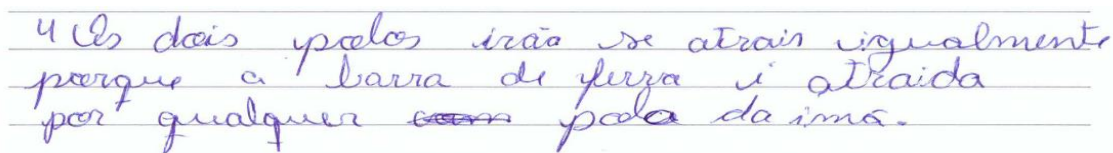 4 Os dois polos irão se atrair igualmente
porque a barra de ferro é atraida
por qualquer polo do imã.